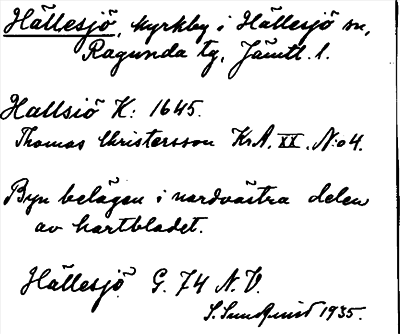 Hällesjö, kyrkby i Hällesjö sn,
Ragunda tg, Jämtl. l.
Hallsiö K: 1645.
Thomas Christersson KrA. XX. N:o 4.
Byn belägen i nordvästra delen
av kartbladet.
Hällesjö G. 74 N.V.
S. Sundquist 1935.